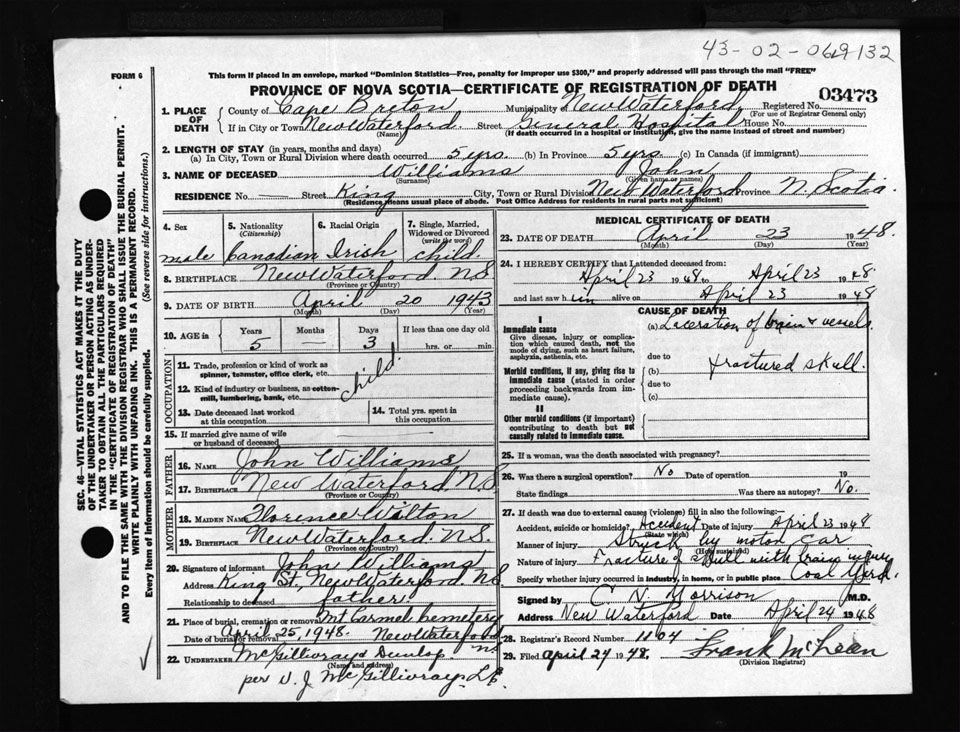 43-02-049132
FORM 6
This form if placed in an envelope, marked "Dominion Statistics—Free, penalty for improper use $300," and properly addressed will pass through the mail "FREE"
PROVINCE OF NOVA SCOTIA—CERTIFICATE OF REGISTRATION OF DEATH
03473
1. PLACE OF DEATH
County of Cape Breton Municipality of New Waterford Registered No.
(For use of Registrar General only)
If in City or Town New Waterford Street General Hospital House No.
(Name) (If death occurred in a hospital or institution, give the name instead of street and number)
2. LENGTH OF STAY (in years, months and days)
(a) In City, Town or Rural Division where death occurred 5 yrs. (b) In Province 5 yrs. (c) In Canada (if immigrant)
3. NAME OF DECEASED Williams John
(Surname) (Given name or names)
RESIDENCE No. Street King City, Town or Rural Division New Waterford Province N. Scotia.
(Residence means usual place of abode. Post Office Address for residents in rural parts not sufficient)
4. Sex
5. Nationality (Citizenship)
6. Racial Origin
7. Single, Married, Widowed or Divorced (write the word)
male Canadian Irish child.
8. BIRTHPLACE New Waterford N.S.
(Province or Country)
9. DATE OF BIRTH April 20 1943
(Month) (Day) (Year)
10. AGE in Years Months Days If less than one day old
5 — 3 hrs. or min.
OCCUPATION
11. Trade, profession or kind of work as spinner, teamster, office clerk, etc.
12. Kind of industry or business, as cotton-mill, lumbering, bank, etc.
child.
13. Date deceased last worked at this occupation
14. Total yrs. spent in this occupation
15. If married give name of wife or husband of deceased
FATHER
16. NAME John Williams
17. BIRTHPLACE New Waterford, N.S.
(Province or Country)
MOTHER
18. MAIDEN NAME Florence Wilton
19. BIRTHPLACE New Waterford. N.S.
(Province or Country)
20. Signature of informant John Williams
Address King St., New Waterford, NS
Relationship to deceased father
21. Place of burial, cremation or removal Mt Carmel Cemetery
Date of burial or removal April 25, 1948. New Waterford
22. UNDERTAKER McGillivray & Dunlop
(Name and address)
per McGillivray
MEDICAL CERTIFICATE OF DEATH
23. DATE OF DEATH April 23 1948.
(Month) (Day) (Year)
24. I HEREBY CERTIFY that I attended deceased from:
April 23 1948 to April 23 1948
and last saw him alive on April 23 1948
CAUSE OF DEATH
I
Immediate cause
Give disease, injury or complication which caused death, not the mode of dying, such as heart failure, asphyxia, asthenia, etc.
(a) Laceration of brain & vessels.
due to
Morbid conditions, if any, giving rise to immediate cause (stated in order proceeding backwards from immediate cause).
(b) fractured skull.
due to
(c)
II
Other morbid conditions (if important) contributing to death but not causally related to immediate cause.
25. If a woman, was the death associated with pregnancy?
26. Was there a surgical operation? No Date of operation 19
State findings Was there an autopsy? No.
27. If death was due to external causes (violence) fill in also the following:—
Accident, suicide or homicide? Accident Date of injury April 23 1948
(State which)
Manner of injury Struck by motor car
(How sustained)
Nature of injury Fracture of skull with brain injury
Specify whether injury occurred in industry, in home, or in public place Coal Yard.
Signed by C N. Morrison M.D.
Address New Waterford Date April 24 1948
28. Registrar's Record Number 1104
29. Filed April 24 1948. Frank McLean
(Division Registrar)
SEC. 46—VITAL STATISTICS ACT MAKES IT THE DUTY
OF THE UNDERTAKER OR PERSON ACTING AS UNDER-
TAKER TO OBTAIN ALL THE PARTICULARS REQUIRED
IN THE "CERTIFICATE OF REGISTRATION OF DEATH"
AND TO FILE THE SAME WITH THE DIVISION REGISTRAR WHO SHALL ISSUE THE BURIAL PERMIT.
WRITE PLAINLY WITH UNFADING INK. THIS IS A PERMANENT RECORD.
Every item of information should be carefully supplied. (See reverse side for instructions.)